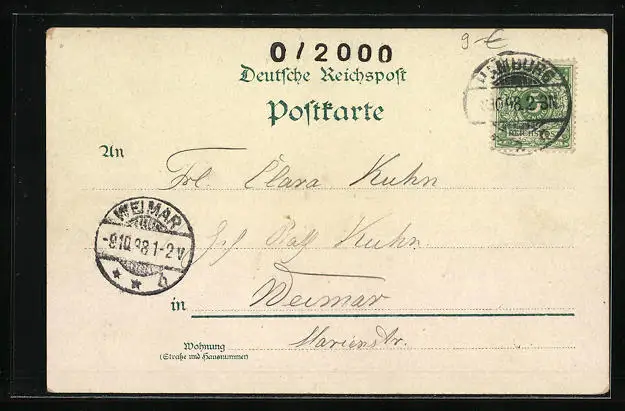 9-€
0/2000
Deutsche Reichspost
Postkarte
HAMBURG
10.98.2-3N.
An
Frl. Clara Kuhn
WEIMAR
-9.10.98.1-2V
b
Kuhn
in Weimar
Marienstr.
Wohnung
(Straße und Hausnummer)